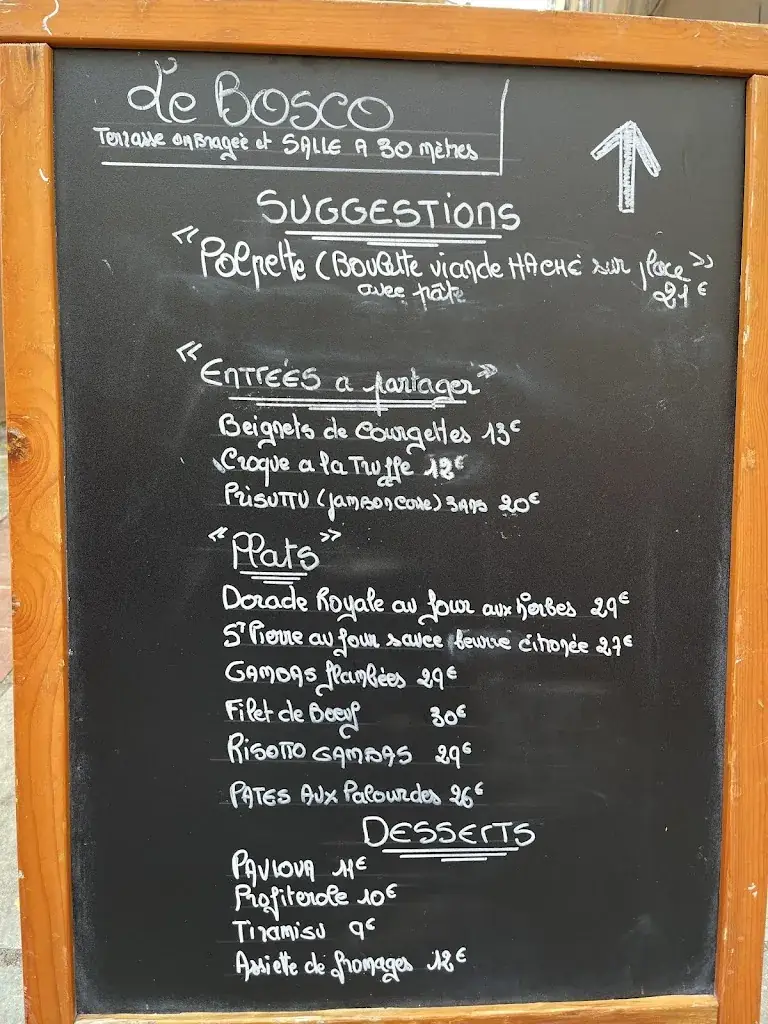 Le BOSCO
Terrasse onbragée et SALLE A 30 mètres
SUGGESTIONS
"Polpette (Boulette viande HACHÉ sur place"
avec pâte
21€
"ENTRÉES a partager"
Beignets de Courgettes 13€
Croque a la Truffe 12€
PRISUTTU (JAMBON CORSE) 3ANS 20€
"Plats"
Dorade Royale au four aux herbes 29€
St Pierre au four sauce beurre citronée 27€
GAMBAS flambées 29€
Filet de Boeuf 30€
RISOTTO GAMBAS 29€
PATES AUX Palourdes 26€
DESSERTS
PAVLOVA 11€
Profiterole 10€
Tiramisu 9€
Assiette de fromages 12€